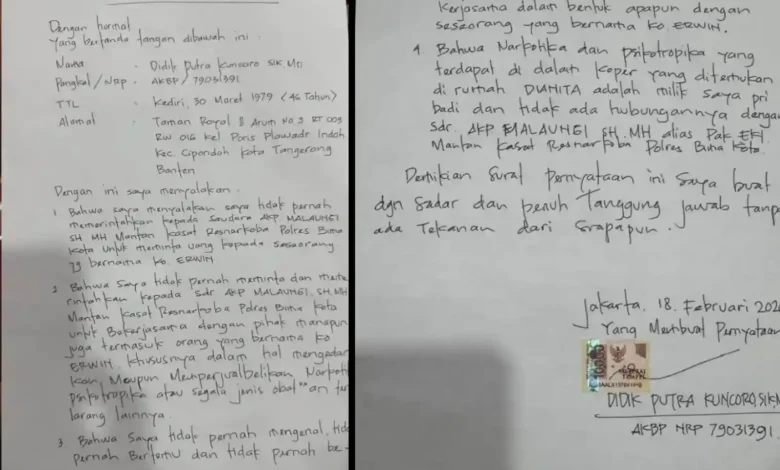 Dengan hormat
Yang bertanda tangan dibawah ini :
Nama : Didik Putra Kuncoro SIK MSi
Pangkat/NRP : AKBP / 79031391
TTL : Kediri, 30 Maret 1979 (46 Tahun)
Alamat : Taman Royal 3 Arum No 3 RT 003
RW 016 Kel Poris Plawadr Indah
Kec. Cipondoh Kota Tangerang
Banten
Dengan ini saya menyatakan :
1 Bahwa saya menyatakan saya tidak pernah
memerintahkan kepada saudara AKP MALAUNGI
SH MH Mantan Kasat Resnarkoba Polres Bima
Kota untuk meminta uang kepada seseorang
yg bernama ko. ERWIN
2 Bahwa Saya tidak pernah meminta dan meme
rintahkan kepada Sdr AKP MALAUNGI, SH.MH
Mantan Kasat Resnarkoba Polres Bima Kota
untuk Bekerjasama dengan pihak manapun
juga termasuk orang yang bernama ko
ERWIN, khususnya dalam hal mengedar
kan, Maupun Memperjualbelikan Narkoti
psikotropika atau segala jenis obat"an ter
larang lainnya.
3 Bahwa Saya tidak pernah mengenal, tid
pernah Bertemu dan tidak pernah be
kerjasama dalam bentuk apapun dengan
seseorang yang bernama ko ERWIN.
4. Bahwa Narkotika dan psikotropika yang
terdapat di dalam koper yang ditemukan
di rumah DIANITA adalah milik saya pri
badi dan tidak ada hubungannya dengan
Sdr. AKP MALAUNGI SH.MH alias Pak EKI
Mantan Kasat Resnarkoba Polres Bima Kota.
Demikian surat pernyataan ini Saya buat
dgn Sadar dan penuh Tanggung jawab tanpa
ada Tekanan dari Siapapun.
Jakarta, 18 Februari 202
Yang Membuat Pernyataan
10000
DIDIK PUTRA KUNCORO, SIK M
AKBP NRP 79031391